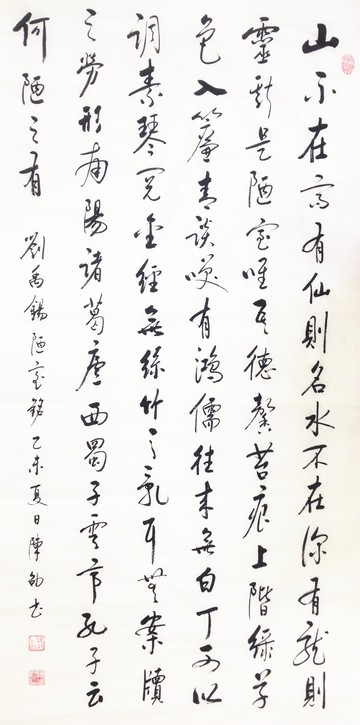 山不在高有仙則名水不在深有龍則
靈斯是陋室唯吾德馨苔痕上階綠草
色入簾青談笑有鴻儒往來無白丁可以
調素琴閱金經無絲竹之亂耳無案牘
之勞形南陽諸葛廬西蜀子雲亭孔子云
何陋之有 劉禹錫陋室銘 乙未夏日陳书